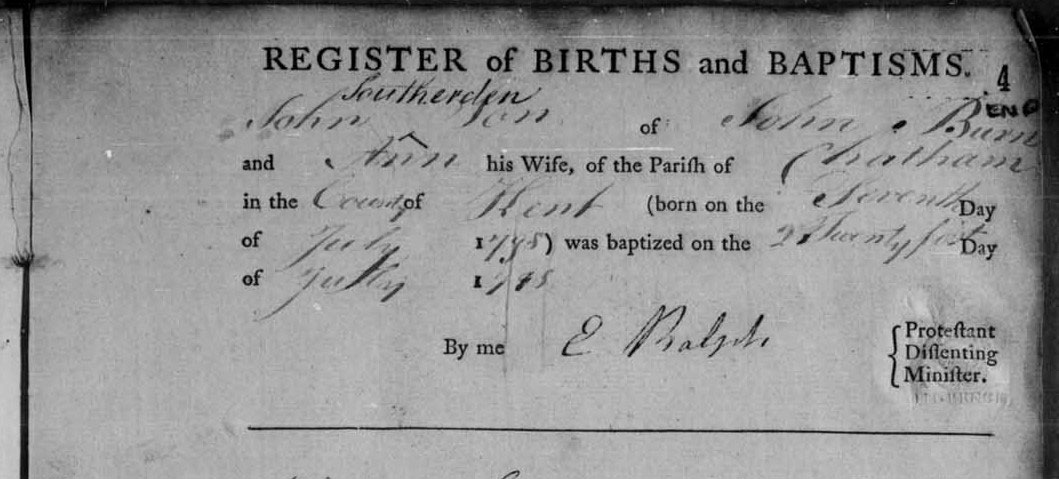 REGISTER of BIRTHS and BAPTISMS.
4
Southerden
John ^ Son of John Burn
and Ann his Wife, of the Pariſh of Chatham
in the County of Kent (born on the Seventh Day
of July 1798) was baptized on the Twenty first Day
of July 1798
By me E Ralph
{ Proteſtant
Diſſenting
Miniſter.